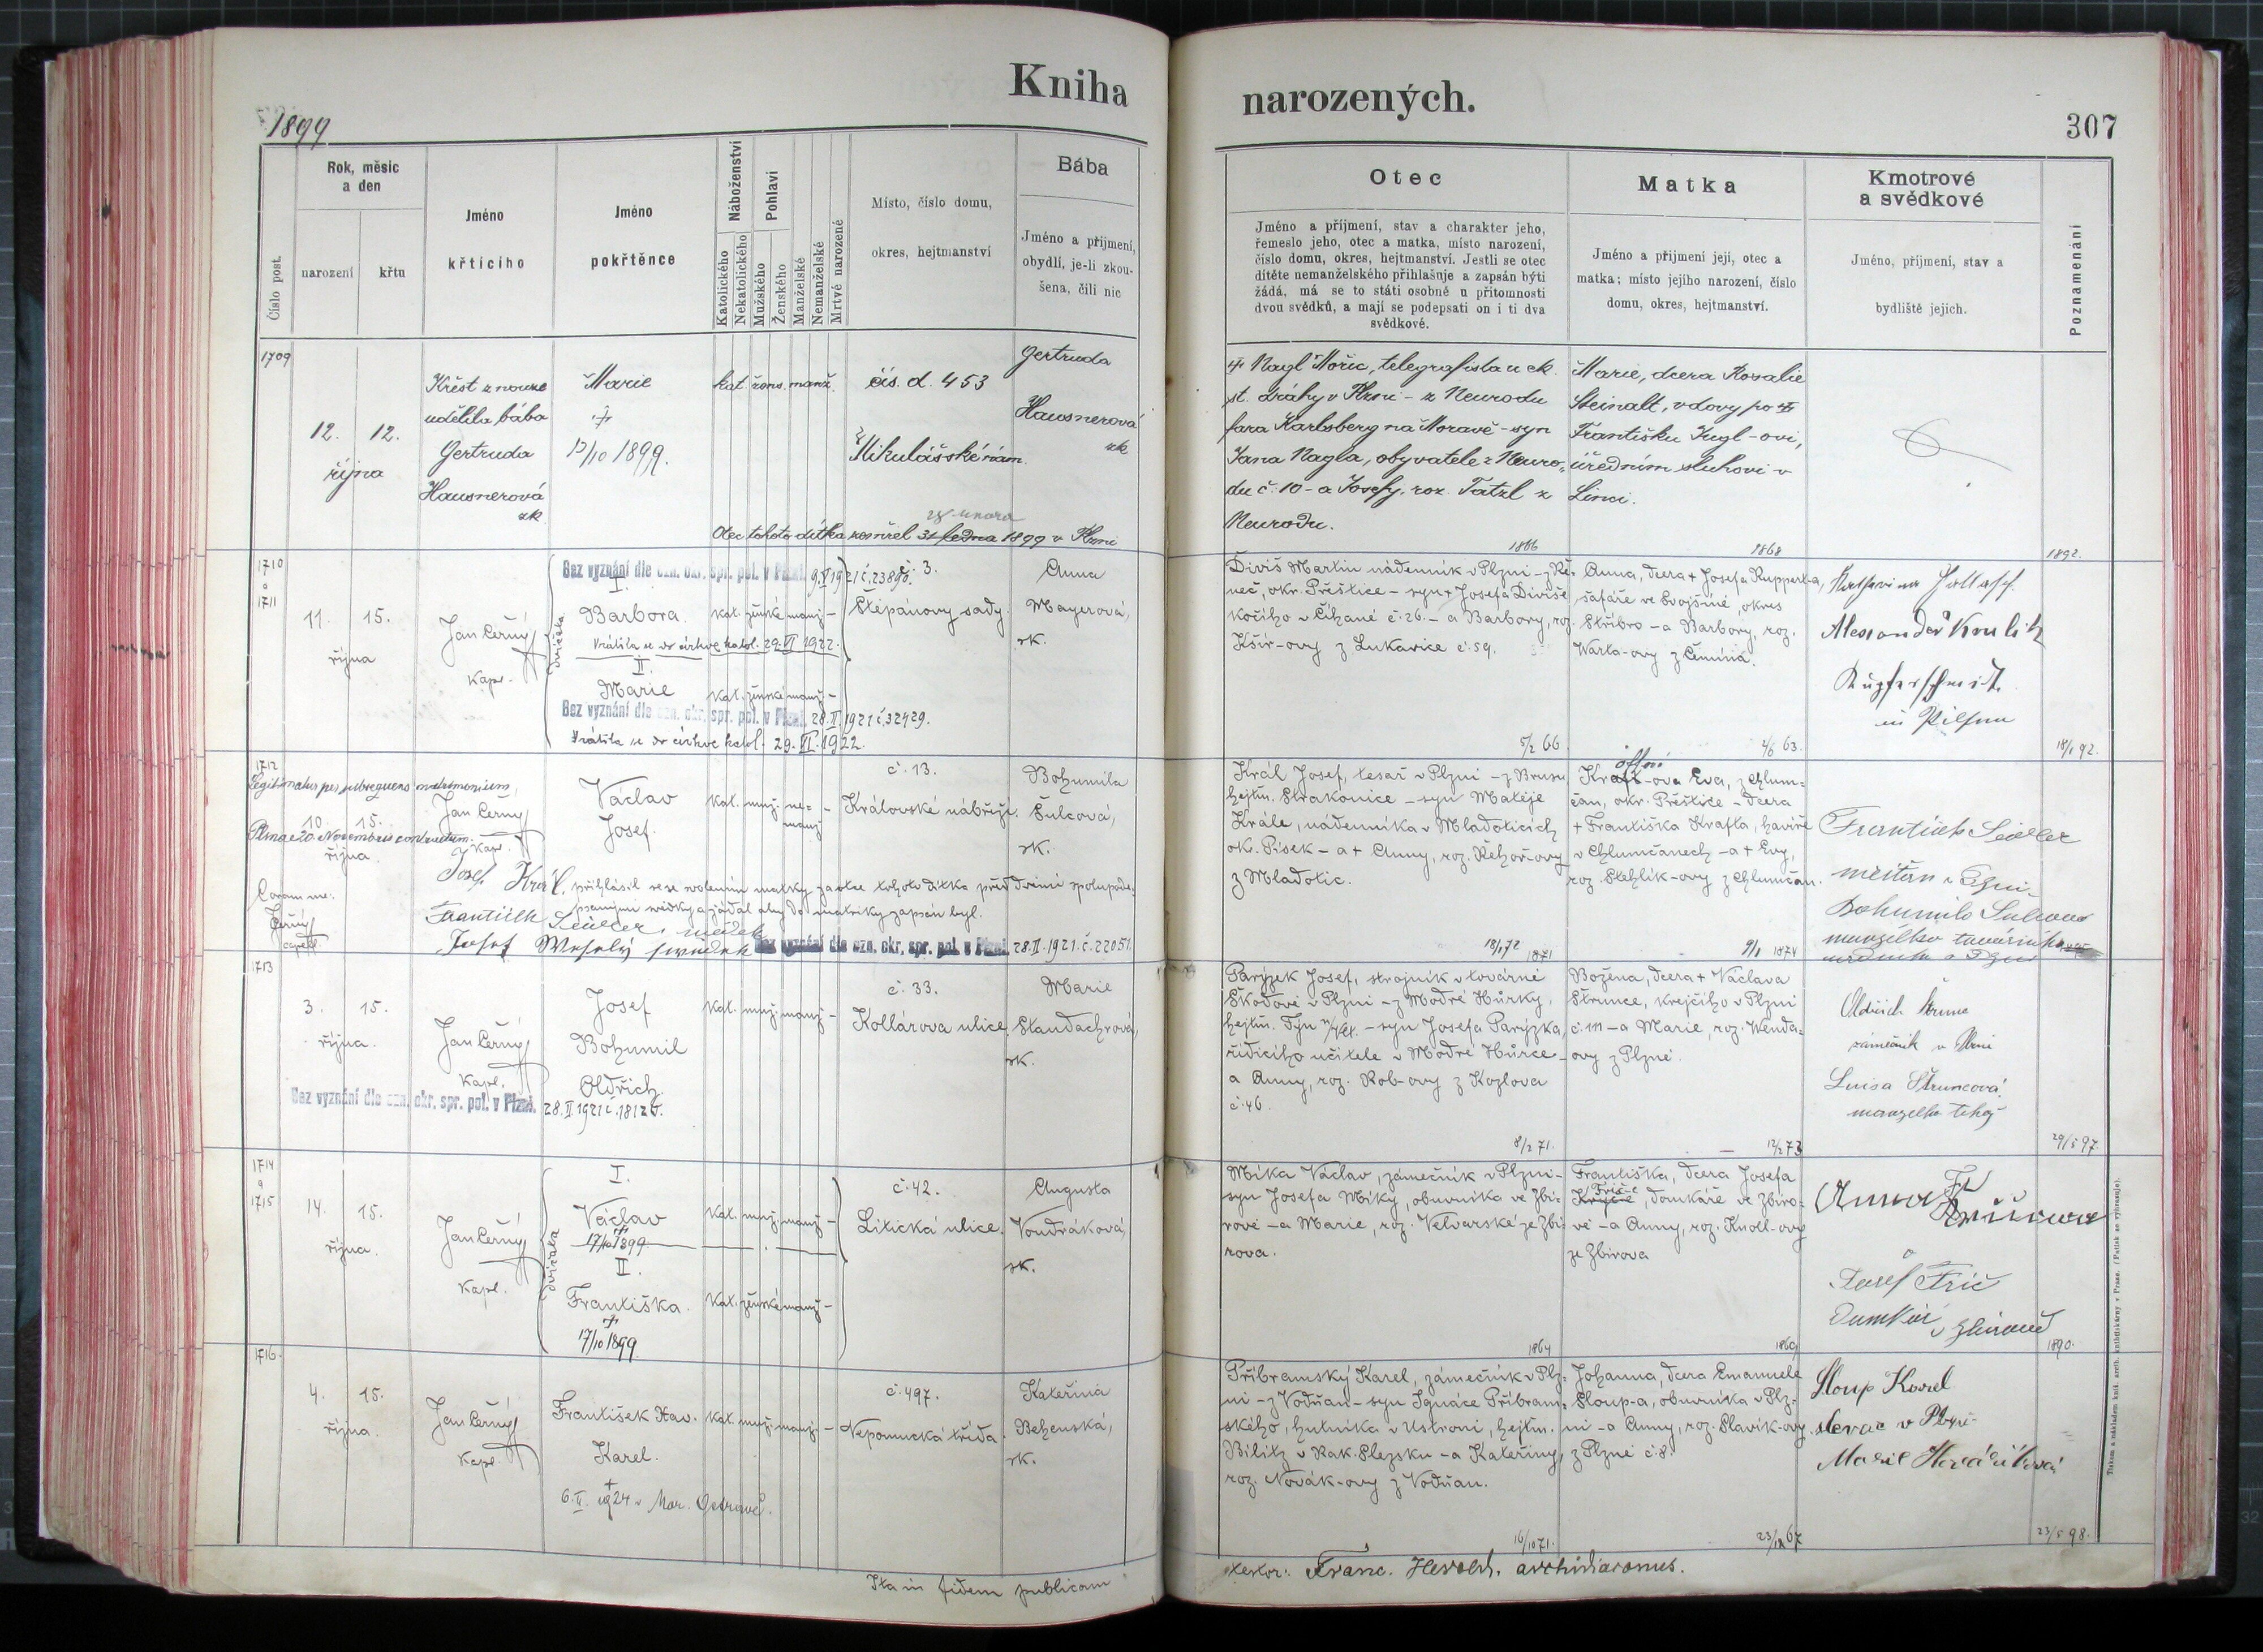 Kniha
narozených.
1899
307
Číslo post.
Rok, měsíc
a den
narození
křtu
Jméno
křtícího
Jméno
pokřtěnce
Náboženství
Katolického
Nekatolického
Pohlaví
Mužského
Ženského
Manželské
Nemanželské
Mrtvě narozené
Místo, číslo domu,
okres, hejtmanství
Bába
Jméno a příjmení,
obydlí, je-li zkou-
šena, čili nic
Otec
Jméno a příjmení, stav a charakter jeho,
řemeslo jeho, otec a matka, místo narození,
číslo domu, okres, hejtmanství. Jestli se otec
dítěte nemanželského přihlašuje a zapsán býti
žádá, má se to státi osobně u přítomnosti
dvou svědků, a mají se podepsati on i ti dva
svědkové.
Matka
Jméno a příjmení její, otec a
matka; místo jejího narození, číslo
domu, okres, hejtmanství.
Kmotrové
a svědkové
Jméno, příjmení, stav a
bydliště jejich.
Poznamenání
1709
12. 12.
října
Křest z nouze
udělila bába
Gertruda
Hausnerová
zk.
Marie
13/10 1899.
kat. žens. manž.
čís. d. 453
Mikulášské nám.
Gertruda
Hausnerová
zk
Nagl Mořic, telegrafista u ck.
st. dráhy v Plzni - z Neurodu
fara Karlsberg na Moravě - syn
Jana Nagla, obyvatele z Neuro-
du č. 10 - a Josefy, roz. Tatzl z
Neurodu.
Marie, dcera Rosalie
Steinalt, vdovy po
Františku -ovi,
úředním sluhovi v
Linci.
28 února
Otec tohoto dítka zemřel 31 ledna 1899 v Plzni
1866
1868
1892.
1710
a
1711
11. 15.
října
Jan Černý
kapl.
dvojčata
Bez vyznání dle ozn. okr. spr. pol. v Plzni. 9.V.1921 č. 23890.
I.
Barbora.
kat. ženské manž.
Vrátila se do církve katol. 29.VI 1922.
II.
Marie
kat. ženské manž.
Bez vyznání dle ozn. okr. spr. pol. v Plzni. 28.II.1921 č. 32429.
Vrátila se do církve katol. 29.VI.1922.
č. 3.
Štěpánovy sady.
Anna
Mayerová,
zk.
Diviš Martin nádenník v Plzni - z Ře-
neč, okr. Přeštice - syn + Josefa Diviše,
kočího v Číhané č. 26. - a Barbory, roz.
Kšír-ovy z Lukavice č. 59.
Anna, dcera + Josefa Ruppert-a,
šafáře ve Svojšíně, okres
Stříbro - a Barbory, roz.
Warta-ovy z Čemína.
Alexander
in Pilsen
5/2 66.
4/6 63.
18/1 92.
1712
Legitimatus per subsequens matrimonium,
Plznae 20. Novembris contractum.
Coram me:
Černý
capell.
10. 15.
října
Jan Černý
kapl.
Václav
Josef.
kat. muž. ne-
manž
č. 13.
Královské nábřeží.
Bohumila
Šulcová,
zk.
Josef Král, přihlásil se se svolením matky za otce tohoto dítka před dvěma spolupode-
psanými svědky a žádal aby do matriky zapsán byl.
František Seidler, svědek
Josef Weselý svědek
Bez vyznání dle ozn. okr. spr. pol. v Plzni. 28.II.1921.č. 22051.
Král Josef, tesař v Plzni - z Brusu
hejtm. Strakonice - syn Matěje
Krále, nádenníka v Mladoticích
okr. Písek - a + Anny, roz. Řehoř-ovy
z Mladotic.
Kraft-ova Eva, z Chlum-
čan, okr. Přeštice - dcera
+ Františka Krafta, havíře
v Chlumčanech - a + Evy,
roz. Stehlík-ovy z Chlumčan.
František Seidler
měšťan v Plzni
Bohumila Šulcova
manželka
18/1 72
1871
9/1 1874
1713
3. 15.
října.
Jan Černý
kapl.
Josef
Bohumil
Oldřich.
Bez vyznání dle ozn. okr. spr. pol. v Plzni. 28.II.1921 č. 18126.
kat. muž. manž.
č. 33.
Kollárova ulice
Marie
Standachrová,
zk.
Parýzek Josef, strojník v továrně
Škodově v Plzni - z Modré Hůrky,
hejtm. Týn n/Vlt. - syn Josefa Parýzka,
řídícího učitele v Modré Hůrce -
a Anny, roz. Rob-ovy z Kozlova
č. 46.
Božena, dcera + Václava
Štrunce, krejčího v Plzni
č. 111 - a Marie, roz. Wenda-
ovy z Plzně.
Oldřich Štrunc
zámečník v Plzni
Luisa Štruncová
manželka téhož
8/2 71.
12/2 73
29/5 97
1714
a
1715
14. 15.
října.
Jan Černý
kapl.
dvojčata
I.
Václav
17/10 1899
II.
Františka.
17/10 1899
kat. muž. manž.
kat. ženské manž.
č. 42.
Litická ulice.
Augusta
Voudráková,
zk.
Míka Václav, zámečník v Plzni -
syn Josefa Míky, obuvníka ve Zbi-
rově - a Marie, roz. Velvarské ze Zbi-
rova.
Františka, dcera Josefa
Friče, domkáře ve Zbiro-
vě - a Anny, roz. Knoll-ovy
ze Zbirova
Anna
a
Josef Frič
Domkář v Zbirově
1864
1869
1890.
1716.
4. 15.
října.
Jan Černý
kapl.
František Xav.
Karel.
6.II. 1924 v Mor. Ostravě.
kat. muž. manž.
č. 497.
Nepomucká třída.
Kateřina
Behenská,
zk.
Příbramský Karel, zámečník v Plz-
ni - z Vodňan - syn Ignáce Příbram-
ského, hutníka v Ustroni, hejtm.
Bílitz v Rak. Slezsku - a Kateřiny,
roz. Novák-ovy z Vodňan.
Johanna, dcera Emanuele
Sloup-a, obuvníka v Plz-
ni - a Anny, roz. Slavík-ovy
z Plzně č. 8.
Sloup Karel
v Plzni
Marie
16/10 71.
23/12 67
23/5 98.
Ita in fidem publicam
testor: Franc. Herold, archidiaconus.